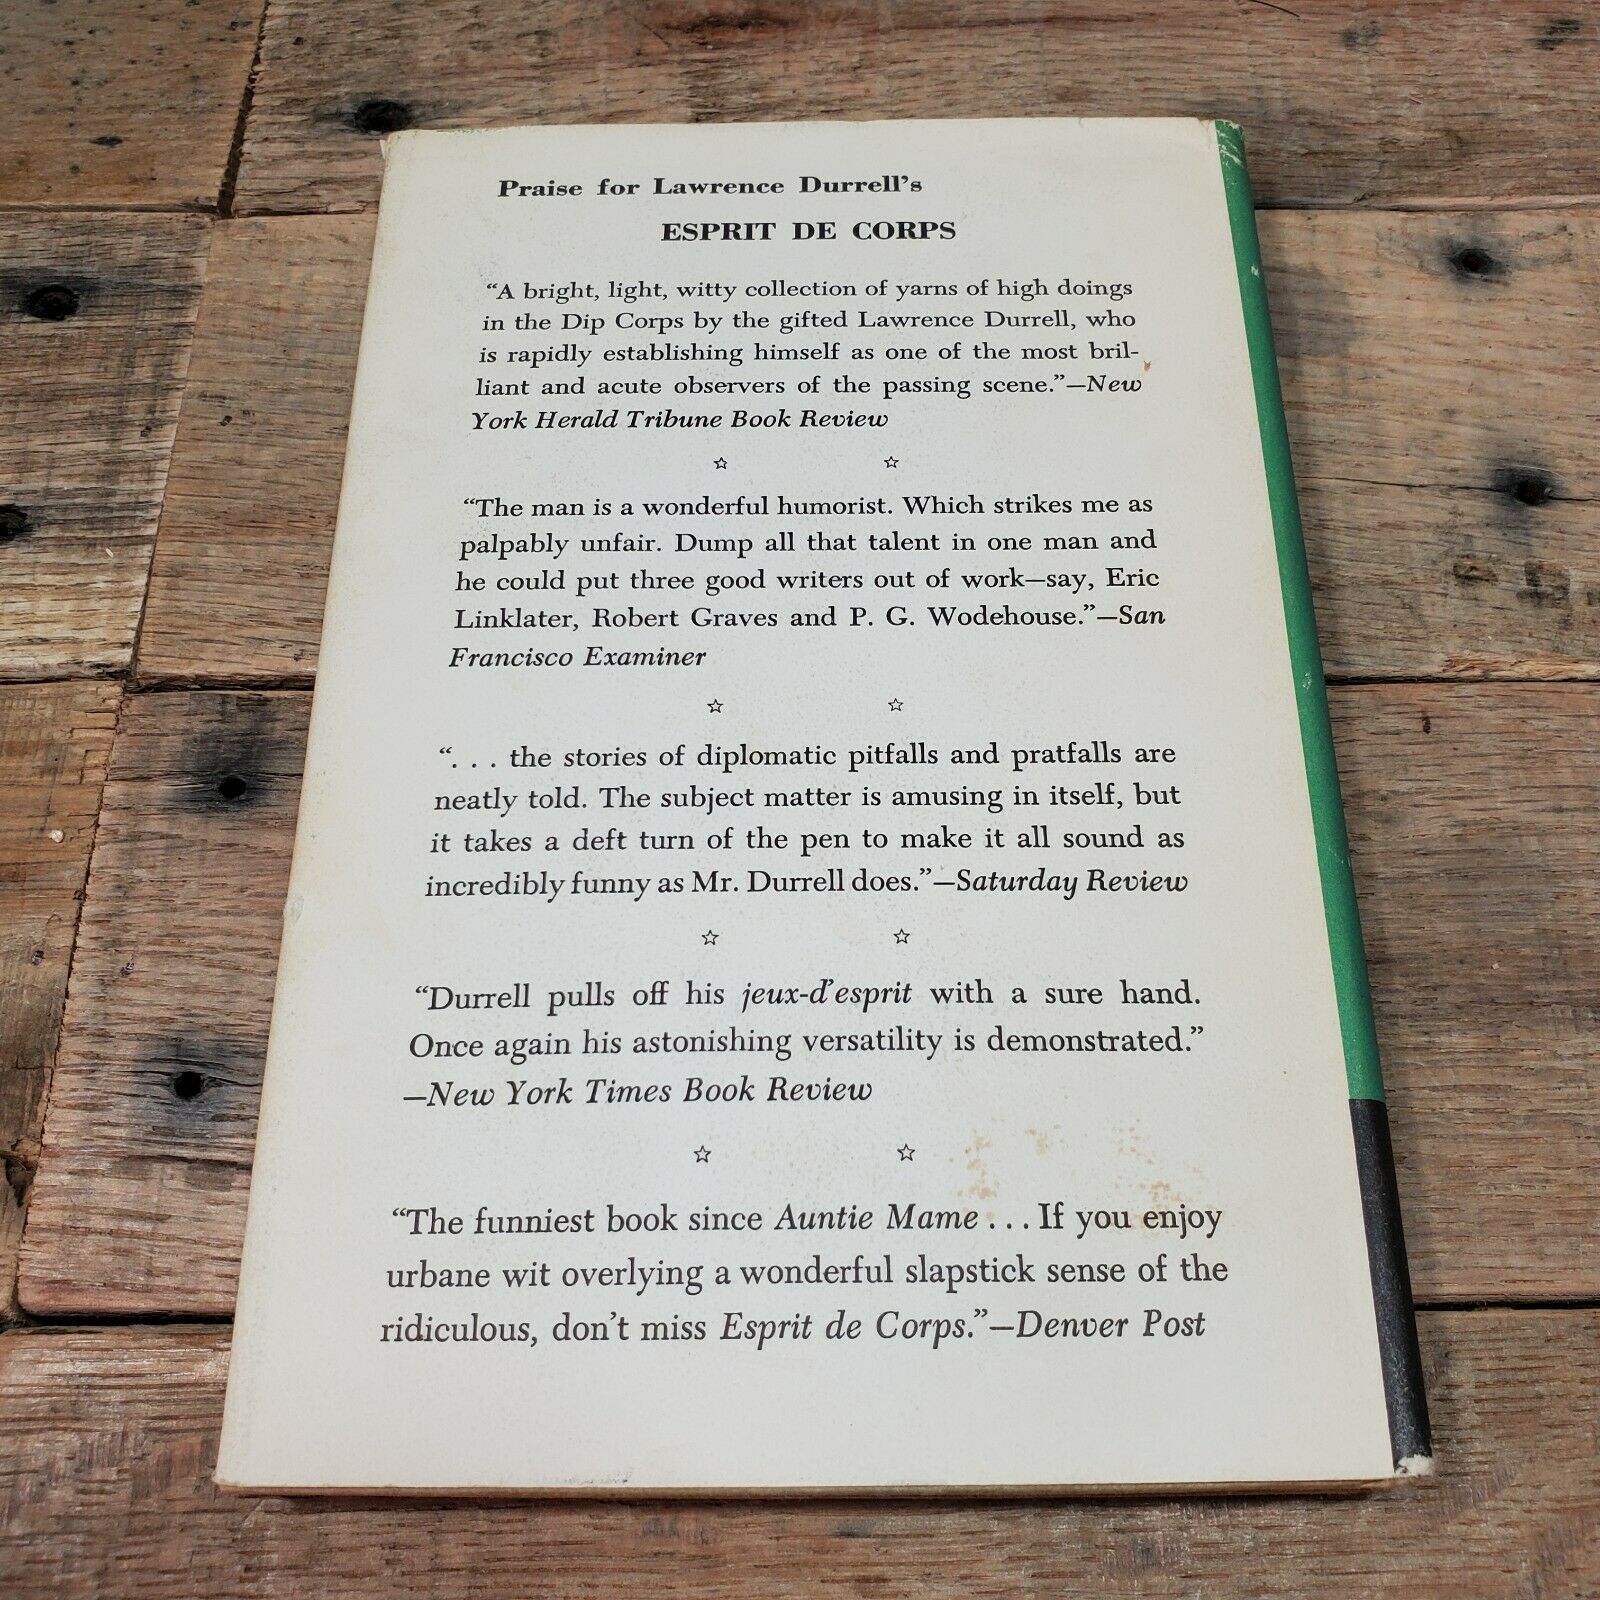 Praise for Lawrence Durrell's
ESPRIT DE CORPS
“A bright, light, witty collection of yarns of high doings
in the Dip Corps by the gifted Lawrence Durrell, who
is rapidly establishing himself as one of the most bril-
liant and acute observers of the passing scene.”—New
York Herald Tribune Book Review
☆ ☆
“The man is a wonderful humorist. Which strikes me as
palpably unfair. Dump all that talent in one man and
he could put three good writers out of work—say, Eric
Linklater, Robert Graves and P. G. Wodehouse.”—San
Francisco Examiner
☆ ☆
“. . . the stories of diplomatic pitfalls and pratfalls are
neatly told. The subject matter is amusing in itself, but
it takes a deft turn of the pen to make it all sound as
incredibly funny as Mr. Durrell does.”—Saturday Review
☆ ☆
“Durrell pulls off his jeux-d'esprit with a sure hand.
Once again his astonishing versatility is demonstrated.”
—New York Times Book Review
☆ ☆
“The funniest book since Auntie Mame . . . If you enjoy
urbane wit overlying a wonderful slapstick sense of the
ridiculous, don't miss Esprit de Corps.”—Denver Post